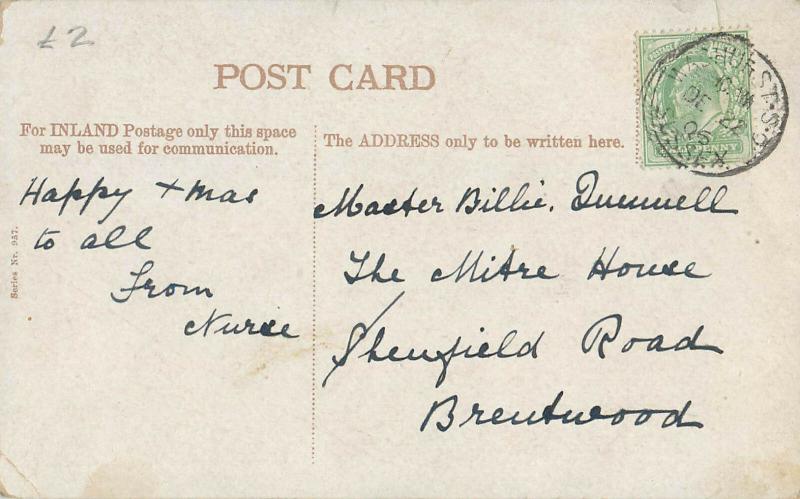 £2
POST CARD
For INLAND Postage only this space
may be used for communication.
The ADDRESS only to be written here.
Happy Xmas
to all
From
Nurse
Master Billie. Quennell
The Mitre House
Shenfield Road
Brentwood
Series Nr. 957.
HURST. S.O.
DE 22
05